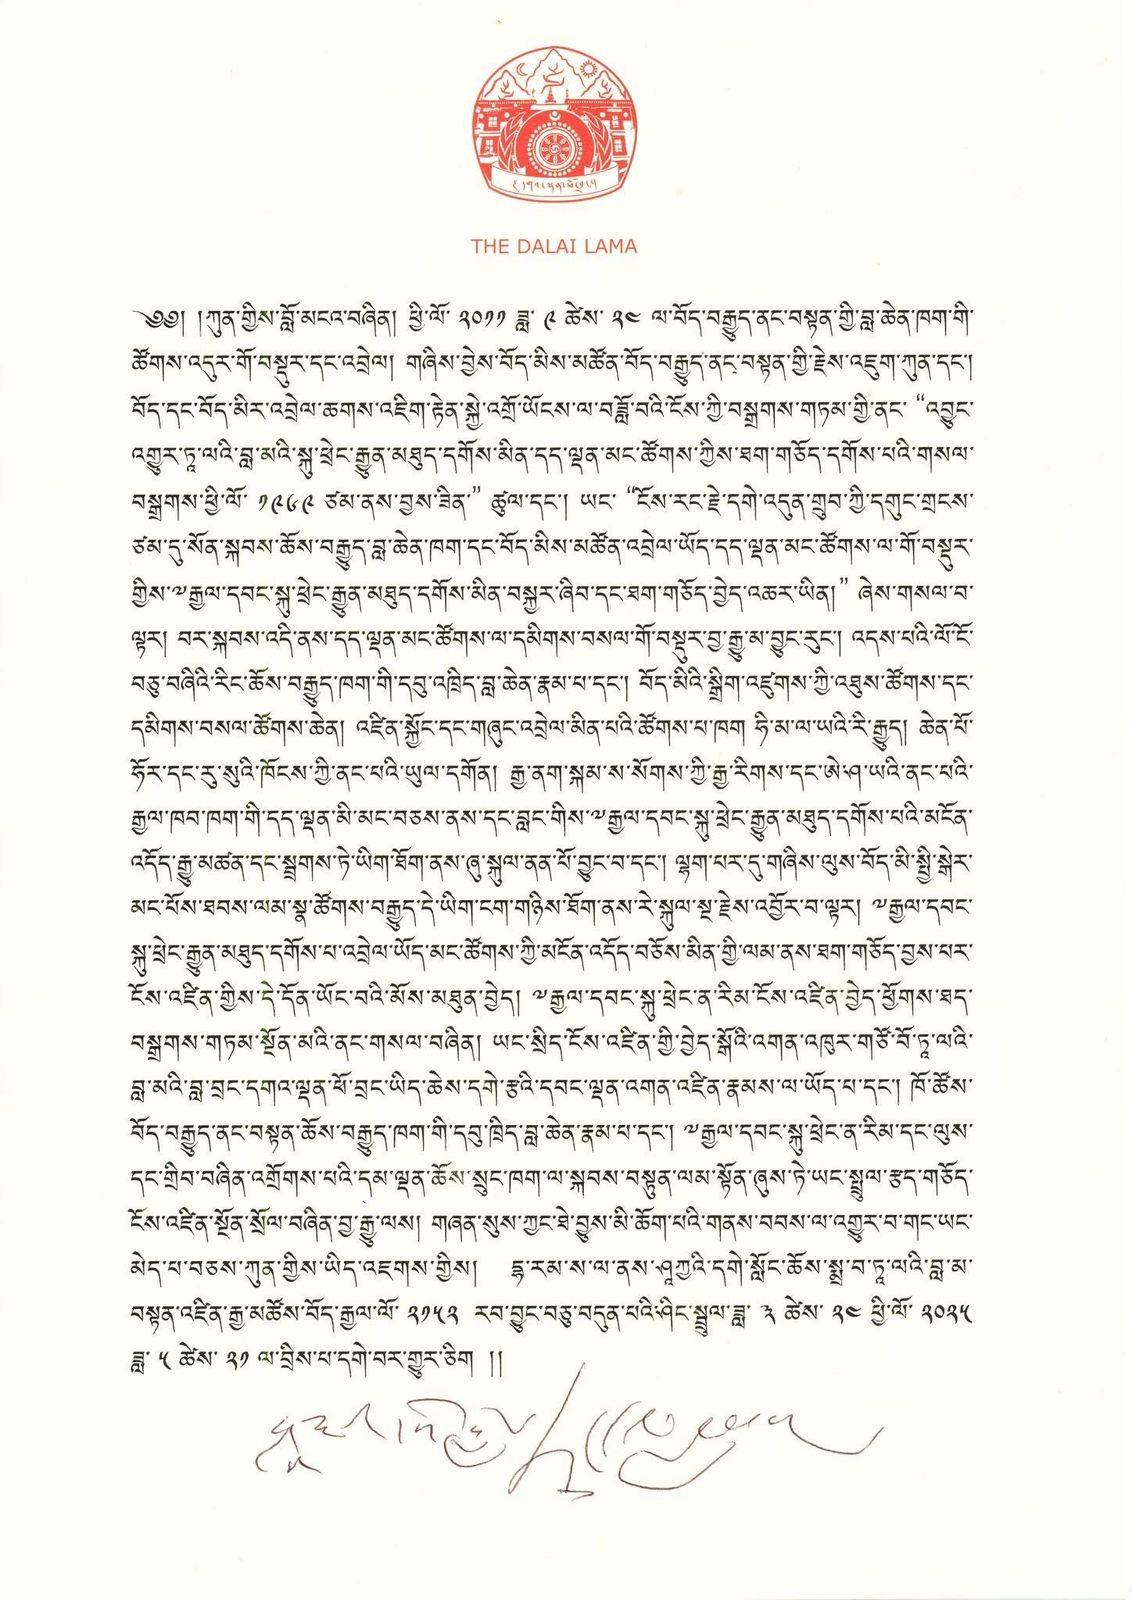 THE DALAI LAMA
༄༅། །ཀུན་གྱིས་བློ་མངའ་བཞིན། ཕྱི་ལོ་ ༢༠༡༡ ཟླ་ ༩ ཚེས་ ༢༤ ལ་བོད་བརྒྱུད་ནང་བསྟན་གྱི་བླ་ཆེན་ཁག་གི་
ཚོགས་འདུར་གོ་བསྡུར་དང་འབྲེལ། གཞིས་བྱེས་བོད་མིས་མཚོན་བོད་བརྒྱུད་ནང་བསྟན་གྱི་རྗེས་འཇུག་ཀུན་དང་།
བོད་དང་བོད་མིར་འབྲེལ་ཆགས་འཇིག་རྟེན་སྐྱེ་འགྲོ་ཡོངས་ལ་བཟློ་བའི་ངོས་ཀྱི་བསྒྲགས་གཏམ་གྱི་ནང་ “འབྱུང་
འགྱུར་ཏཱ་ལའི་བླ་མའི་སྐུ་ཕྲེང་རྒྱུན་མཐུད་དགོས་མིན་དད་ལྡན་མང་ཚོགས་ཀྱིས་ཐག་གཅོད་དགོས་པའི་གསལ་
བསྒྲགས་ཕྱི་ལོ་ ༡༩༦༩ ཙམ་ནས་བྱས་ཟིན་” ཚུལ་དང་། ཡང་ “ངོས་རང་རྗེ་དགེ་འདུན་གྲུབ་ཀྱི་དགུང་གྲངས་
ཙམ་དུ་སོན་སྐབས་ཆོས་བརྒྱུད་བླ་ཆེན་ཁག་དང་བོད་མིས་མཚོན་འབྲེལ་ཡོད་དད་ལྡན་མང་ཚོགས་ལ་གོ་བསྡུར་
གྱིས་༧རྒྱལ་དབང་སྐུ་ཕྲེང་རྒྱུན་མཐུད་དགོས་མིན་བསྐྱར་ཞིབ་དང་ཐག་གཅོད་བྱེད་འཆར་ཡིན།” ཞེས་གསལ་བ་
ལྟར། བར་སྐབས་འདི་ནས་དད་ལྡན་མང་ཚོགས་ལ་དམིགས་བསལ་གོ་བསྡུར་བྱ་རྒྱུ་མ་བྱུང་རུང་། འདས་པའི་ལོ་ངོ་
བཅུ་བཞིའི་རིང་ཆོས་བརྒྱུད་ཁག་གི་དབུ་འཁྲིད་བླ་ཆེན་རྣམ་པ་དང་། བོད་མིའི་སྒྲིག་འཛུགས་ཀྱི་འཐུས་ཚོགས་དང་
དམིགས་བསལ་ཚོགས་ཆེན། འཛིན་སྐྱོང་དང་གཞུང་འབྲེལ་མིན་པའི་ཚོགས་པ་ཁག ཧི་མ་ལ་ཡའི་རི་རྒྱུད། ཆེན་པོ་
ཧོར་དང་རུ་སུའི་ཁོངས་ཀྱི་ནང་པའི་ཡུལ་དགོན། རྒྱ་ནག་སྐམ་ས་སོགས་ཀྱི་རྒྱ་རིགས་དང་ཨེ་ཤ་ཡའི་ནང་པའི་
རྒྱལ་ཁབ་ཁག་གི་དད་ལྡན་མི་མང་བཅས་ནས་དང་བླང་གིས་༧རྒྱལ་དབང་སྐུ་ཕྲེང་རྒྱུན་མཐུད་དགོས་པའི་མངོན་
འདོད་རྒྱུ་མཚན་དང་སྦྲགས་ཏེ་ཡིག་ཐོག་ནས་ཞུ་སྐུལ་ནན་པོ་བྱུང་བ་དང་། ལྷག་པར་དུ་གཞིས་ལུས་བོད་མི་སྤྱི་སྒེར་
མང་པོས་ཐབས་ལམ་སྣ་ཚོགས་བརྒྱུད་དེ་ཡིག་ངག་གཉིས་ཐོག་ནས་རེ་སྐུལ་སྔ་རྗེས་འབྱོར་བ་ལྟར། ༧རྒྱལ་དབང་
སྐུ་ཕྲེང་རྒྱུན་མཐུད་དགོས་པ་འབྲེལ་ཡོད་མང་ཚོགས་ཀྱི་མངོན་འདོད་བཅོས་མིན་གྱི་ལམ་ནས་ཐག་གཅོད་བྱས་པར་
ངོས་འཛིན་གྱིས་དེ་དོན་ཡོང་བའི་མོས་མཐུན་བྱེད། ༧རྒྱལ་དབང་སྐུ་ཕྲེང་ན་རིམ་ངོས་འཛིན་བྱེད་ཕྱོགས་ཐད་
བསྒྲགས་གཏམ་སྔོན་མའི་ནང་གསལ་བཞིན། ཡང་སྲིད་ངོས་འཛིན་གྱི་བྱེད་སྒོའི་འགན་འཁུར་གཙོ་བོ་ཏཱ་ལའི་
བླ་མའི་བླ་བྲང་དགའ་ལྡན་ཕོ་བྲང་ཡིད་ཆེས་དགེ་རྩའི་དབང་ལྡན་འགན་འཛིན་རྣམས་ལ་ཡོད་པ་དང་། ཁོ་ཚོས་
བོད་བརྒྱུད་ནང་བསྟན་ཆོས་བརྒྱུད་ཁག་གི་དབུ་ཁྲིད་བླ་ཆེན་རྣམ་པ་དང་། ༧རྒྱལ་དབང་སྐུ་ཕྲེང་ན་རིམ་དང་ལུས་
དང་གྲིབ་བཞིན་འགྲོགས་པའི་དམ་ལྡན་ཆོས་སྲུང་ཁག་ལ་སྐབས་བསྟུན་ལམ་སྟོན་ཞུས་ཏེ་ཡང་སྤྲུལ་རྩད་གཅོད་
ངོས་འཛིན་སྔོན་སྲོལ་བཞིན་བྱ་རྒྱུ་ལས། གཞན་སུས་ཀྱང་ཐེ་བྱུས་མི་ཆོག་པའི་གནས་བབས་ལ་འགྱུར་བ་གང་ཡང་
མེད་པ་བཅས་ཀུན་གྱིས་ཡིད་འཇགས་གྱིས། དྷ་རམ་ས་ལ་ནས་ཤཱཀྱའི་དགེ་སློང་ཆོས་སྨྲ་བ་ཏཱ་ལའི་བླ་མ་
བསྟན་འཛིན་རྒྱ་མཚོས་བོད་རྒྱལ་ལོ་ ༢༡༥༢ རབ་བྱུང་བཅུ་བདུན་པའི་ཤིང་སྦྲུལ་ཟླ་ ༣ ཚེས་ ༢༤ ཕྱི་ལོ་ ༢༠༢༥
ཟླ་ ༥ ཚེས་ ༢༡ ལ་བྲིས་པ་དགེ་བར་གྱུར་ཅིག །།